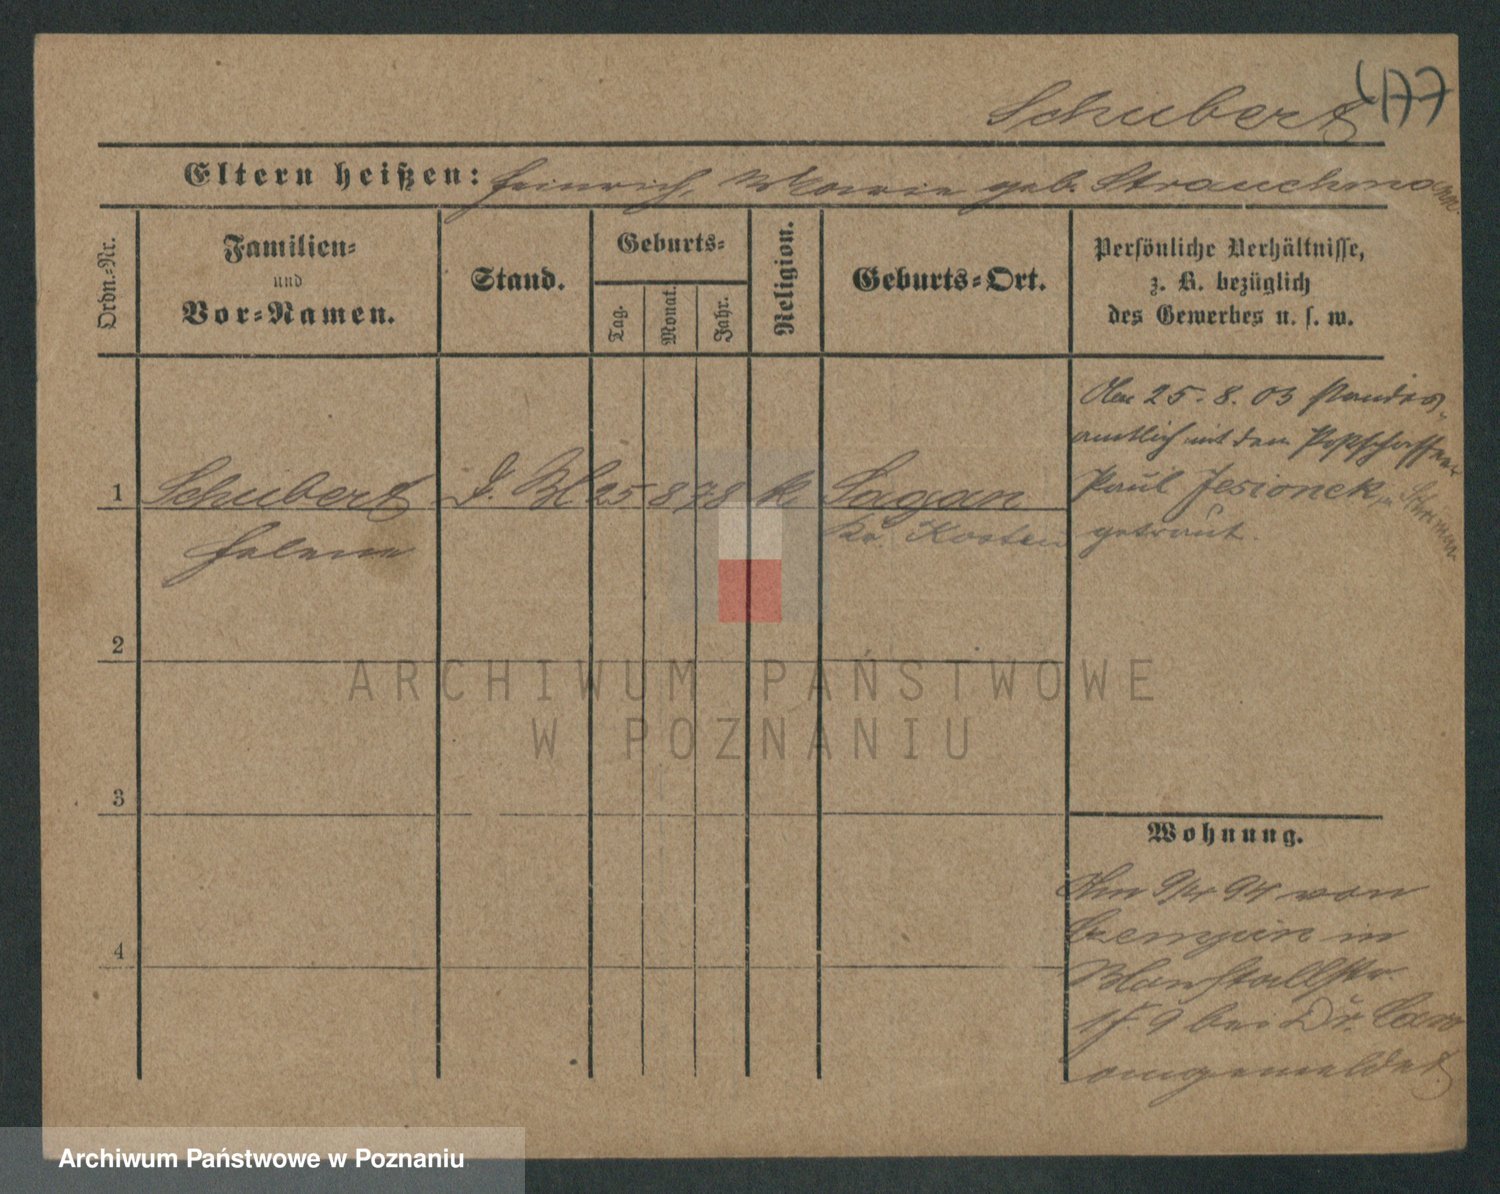 Schubert 477
Eltern heißen: Heinrich, Marie geb. Strauchmann
Ordn.-Nr.
Familien-
und
Vor-Namen.
Stand.
Geburts-
Tag.
Monat.
Jahr.
Religion.
Geburts-Ort.
Persönliche Verhältnisse,
z. B. bezüglich
des Gewerbes u. s. w.
1 Schubert 25 8 78 k
Helene Kr. Kosten
2
3
4
Am 25. 8. 03 standes-
amtlich mit dem Postschaffner
Paul Jesionek
getraut.
Wohnung.
Am 9/4 94 von
Czempin in
9 bei Dr. Caro
angemeldet.
ARCHIWUM PAŃSTWOWE
W POZNANIU
Archiwum Państwowe w Poznaniu